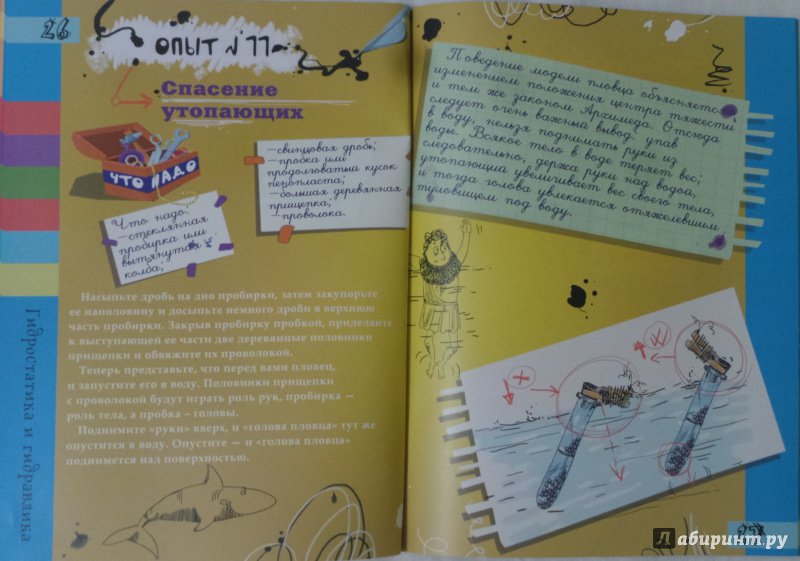 26
ОПЫТ №11
Спасение
утопающих
ЧТО НАДО
Что надо:
—стеклянная
пробирка или
вытянутая
колба;
—свинцовая дробь;
—пробка или
продолговатый кусок
пенопласта;
—большая деревянная
прищепка;
—проволока.
Насыпьте дробь на дно пробирки, затем закупорьте
ее наполовину и досыпьте немного дроби в верхнюю
часть пробирки. Закрыв пробирку пробкой, приделайте
к выступающей ее части две деревянные половинки
прищепки и обвяжите их проволокой.
Теперь представьте, что перед вами пловец,
и запустите его в воду. Половинки прищепки
с проволокой будут играть роль рук, пробирка —
роль тела, а пробка – головы.
Поднимите «руки» вверх, и «голова пловца» тут же
опустится в воду. Опустите — и «голова пловца»
поднимется над поверхностью.
Гидростатика и гидравлика
Поведение модели пловца объясняется
изменением положения центра тяжести
и тем же законом Архимеда. Отсюда
следует очень важный вывод: упав
в воду, нельзя поднимать руки из
воды. Всякое тело в воде теряет вес;
следовательно, держа руки над водой,
утопающий увеличивает вес своего тела,
и тогда голова увлекается отяжелевшим
туловищем под воду.
27
Лабиринт.ру